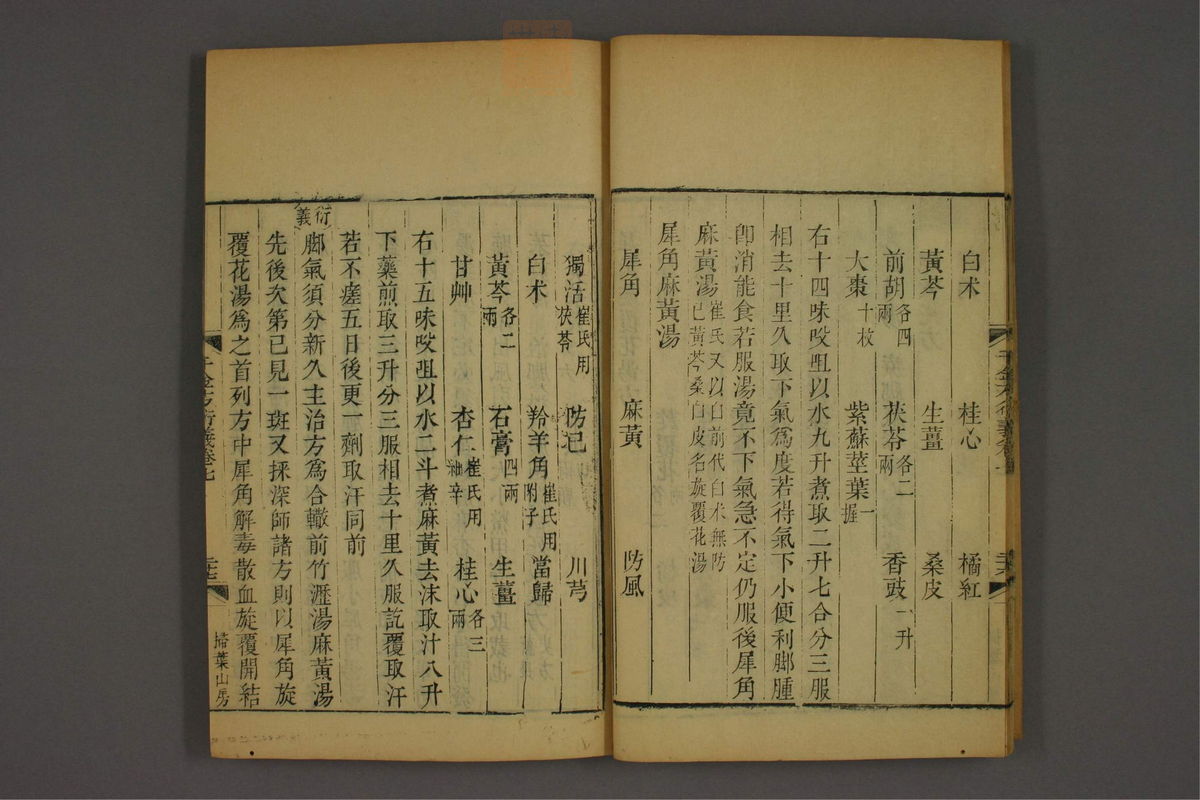 白朮　桂心　橘紅
黃芩　生薑　桑皮
前胡各四兩　茯苓各二兩　香豉一升
大棗十枚　紫蘇莖葉一握
右十四味㕮咀以水九升煮取二升七合分三服
相去十里久取下氣爲度若得氣下小便利脚腫
卽消能食若服湯竟不下氣急不定仍服後犀角
麻黃湯崔氏又以白前代白朮無防已黃芩桑白皮名旋覆花湯
犀角麻黃湯
犀角　麻黃　防風
獨活崔氏用茯苓　防已　川芎
白朮　羚羊角崔氏用附子　當歸
黃芩各二兩　石膏四兩　生薑
甘艸　杏仁崔氏用細辛　桂心各三兩
右十五味㕮咀以水二斗煮麻黃去沫取汁八升
下藥煎取三升分三服相去十里久服訖覆取汗
若不瘥五日後更一劑取汗同前
衍義
脚氣須分新久主治方爲合轍前竹瀝湯麻黃湯
先後次第已見一斑又採深師諸方則以犀角旋
覆花湯爲之首列方中犀角解毒散血旋覆開結
千金方衍義卷七
掃葉山房